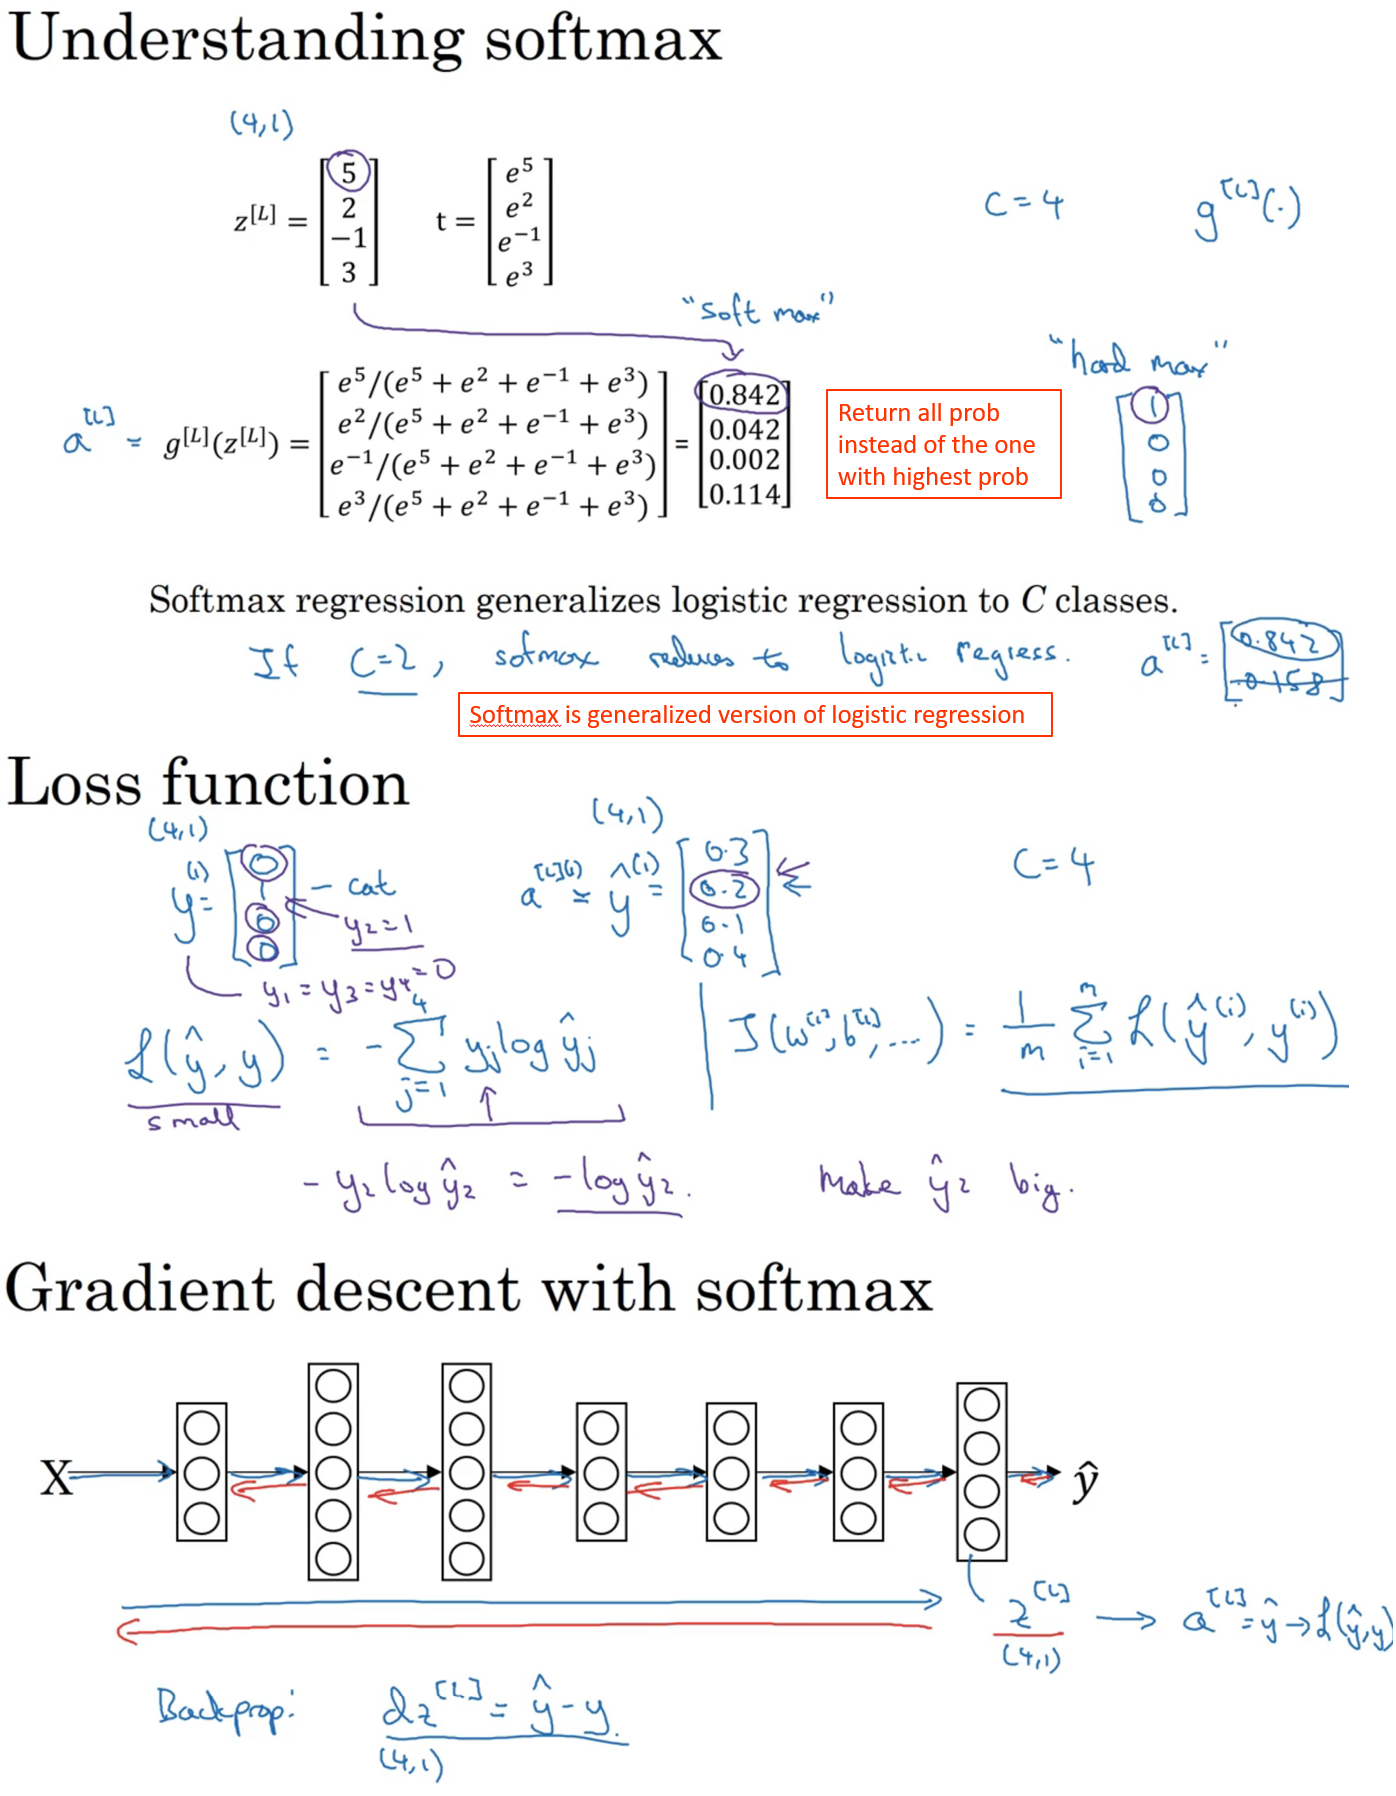 Understanding softmax
(4,1)
z^[L] = [5 2 −1 3] t = [e^5 e^2 e^−1 e^3]
C = 4 g^[L](·)
"soft max"
"hard max"
a^[L] = g^[L](z^[L]) = [e^5/(e^5 + e^2 + e^−1 + e^3) e^2/(e^5 + e^2 + e^−1 + e^3) e^−1/(e^5 + e^2 + e^−1 + e^3) e^3/(e^5 + e^2 + e^−1 + e^3)] = [0.842 0.042 0.002 0.114]
Return all prob
instead of the one
with highest prob
[1 0 0 0]
Softmax regression generalizes logistic regression to C classes.
If C=2, sofmax reduces to logistic regress. a^[L] = [0.842 0.158]
Softmax is generalized version of logistic regression
Loss function
(4,1) (4,1)
y^(1) = [0 1 0 0] – cat y2=1
a^[L](1) = ŷ^(1) = [0.3 0.2 0.1 0.4]
C = 4
y1 = y3 = y4 = 0
ℒ(ŷ, y) = − Σ_{j=1}^{4} yj log ŷj
small
J(w^[1], b^[1], ...) = 1/m Σ_{i=1}^{m} ℒ(ŷ^(i), y^(i))
− y2 log ŷ2 = − log ŷ2. Make ŷ2 big.
Gradient descent with softmax
X ŷ
z^[L] → a^[L] = ŷ → ℒ(ŷ, y)
(4,1)
Backprop: dz^[L] = ŷ − y.
(4,1)